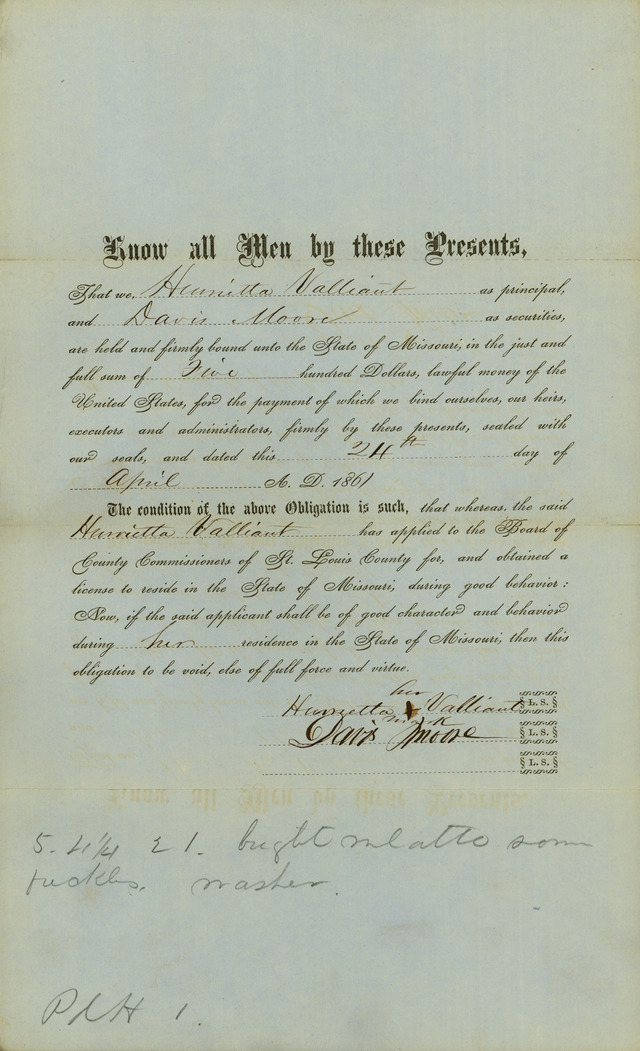 Know all Men by these Presents,
That we, Henrietta Valliant as principal,
and Davis Moore as securities,
are held and firmly bound unto the State of Missouri, in the just and
full sum of Five hundred Dollars, lawful money of the
United States, for the payment of which we bind ourselves, our heirs,
executors and administrators, firmly by these presents, sealed with
our seals, and dated this 24th day of
April A. D. 1861
The condition of the above Obligation is such, that whereas, the said
Henrietta Valliant has applied to the Board of
County Commissioners of St. Louis County for, and obtained a
license to reside in the State of Missouri, during good behavior:
Now, if the said applicant shall be of good character and behavior
during her residence in the State of Missouri, then this
obligation to be void, else of full force and virtue.
her
Henrietta x Valliant L. S.
mark
Davis Moore L. S.
L. S.
5. 4 1/4 21. bright mulatto some
freckles. washer.
1.